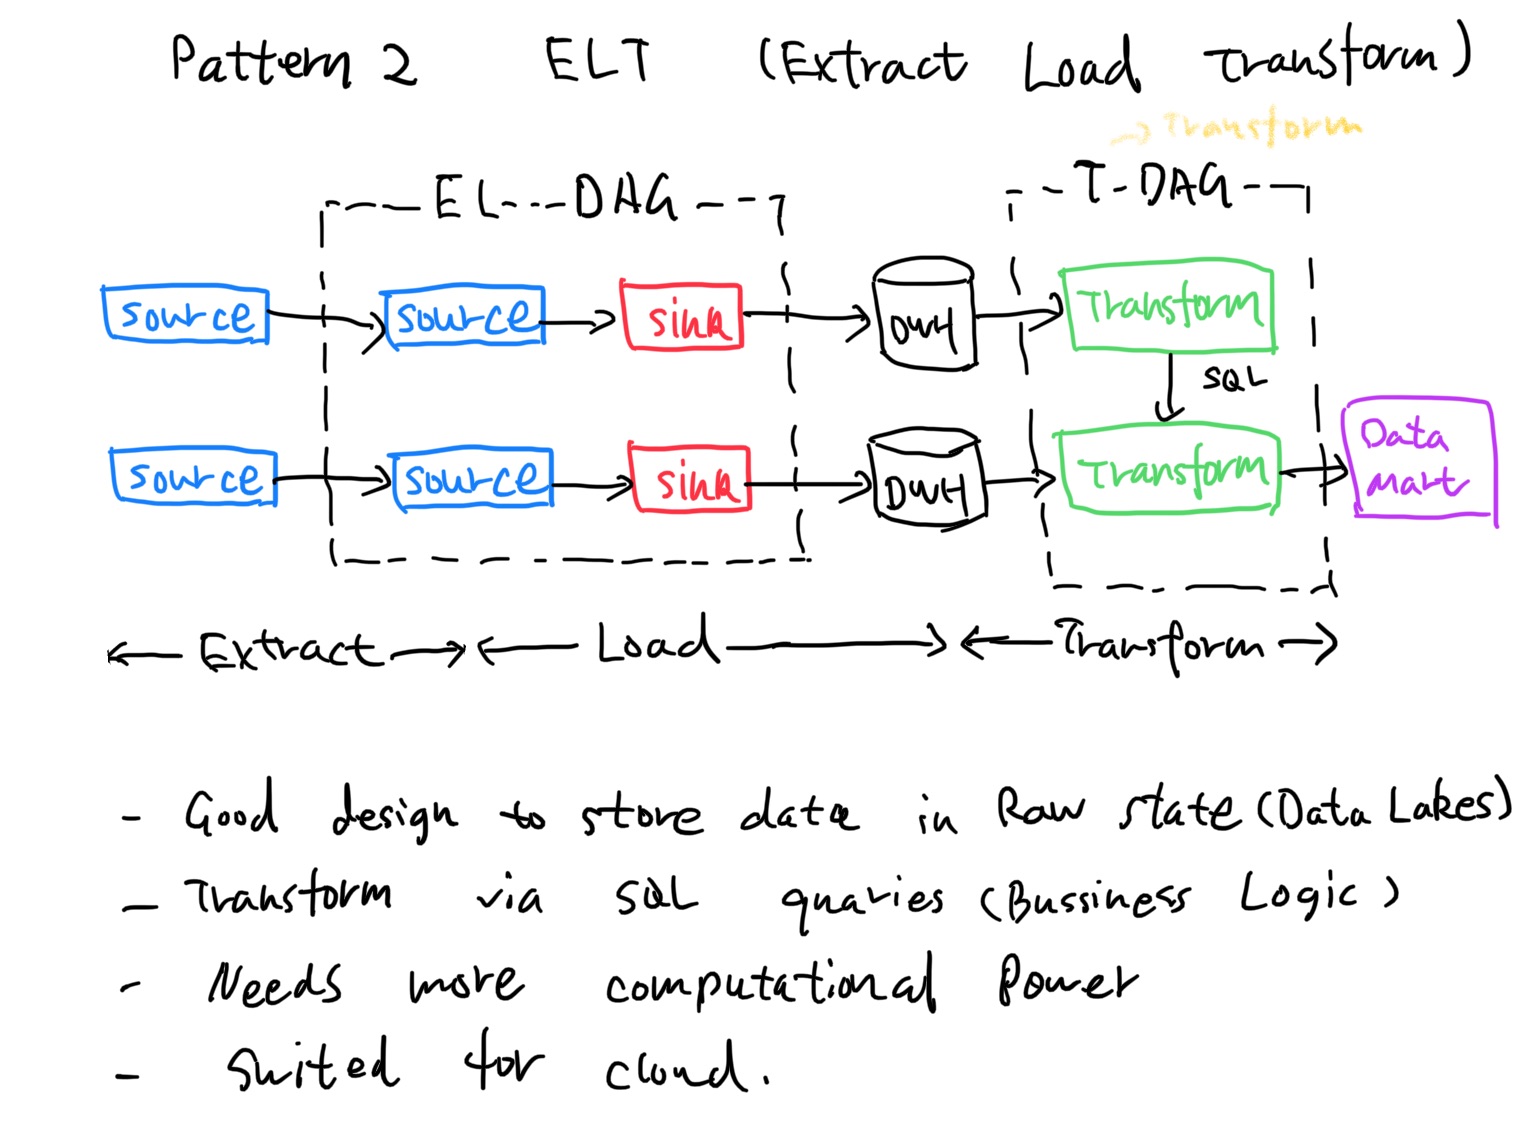 Pattern 2 ELT (Extract Load Transform)
→ Transform
EL DAG
T-DAG
source source sink DWH Transform
SQL
source source sink DWH Transform Data mart
Extract Load Transform
- Good design to store data in Raw state (Data Lakes)
- Transform via SQL quaries (Bussiness Logic)
- Needs more computational Power
- Suited for cloud.